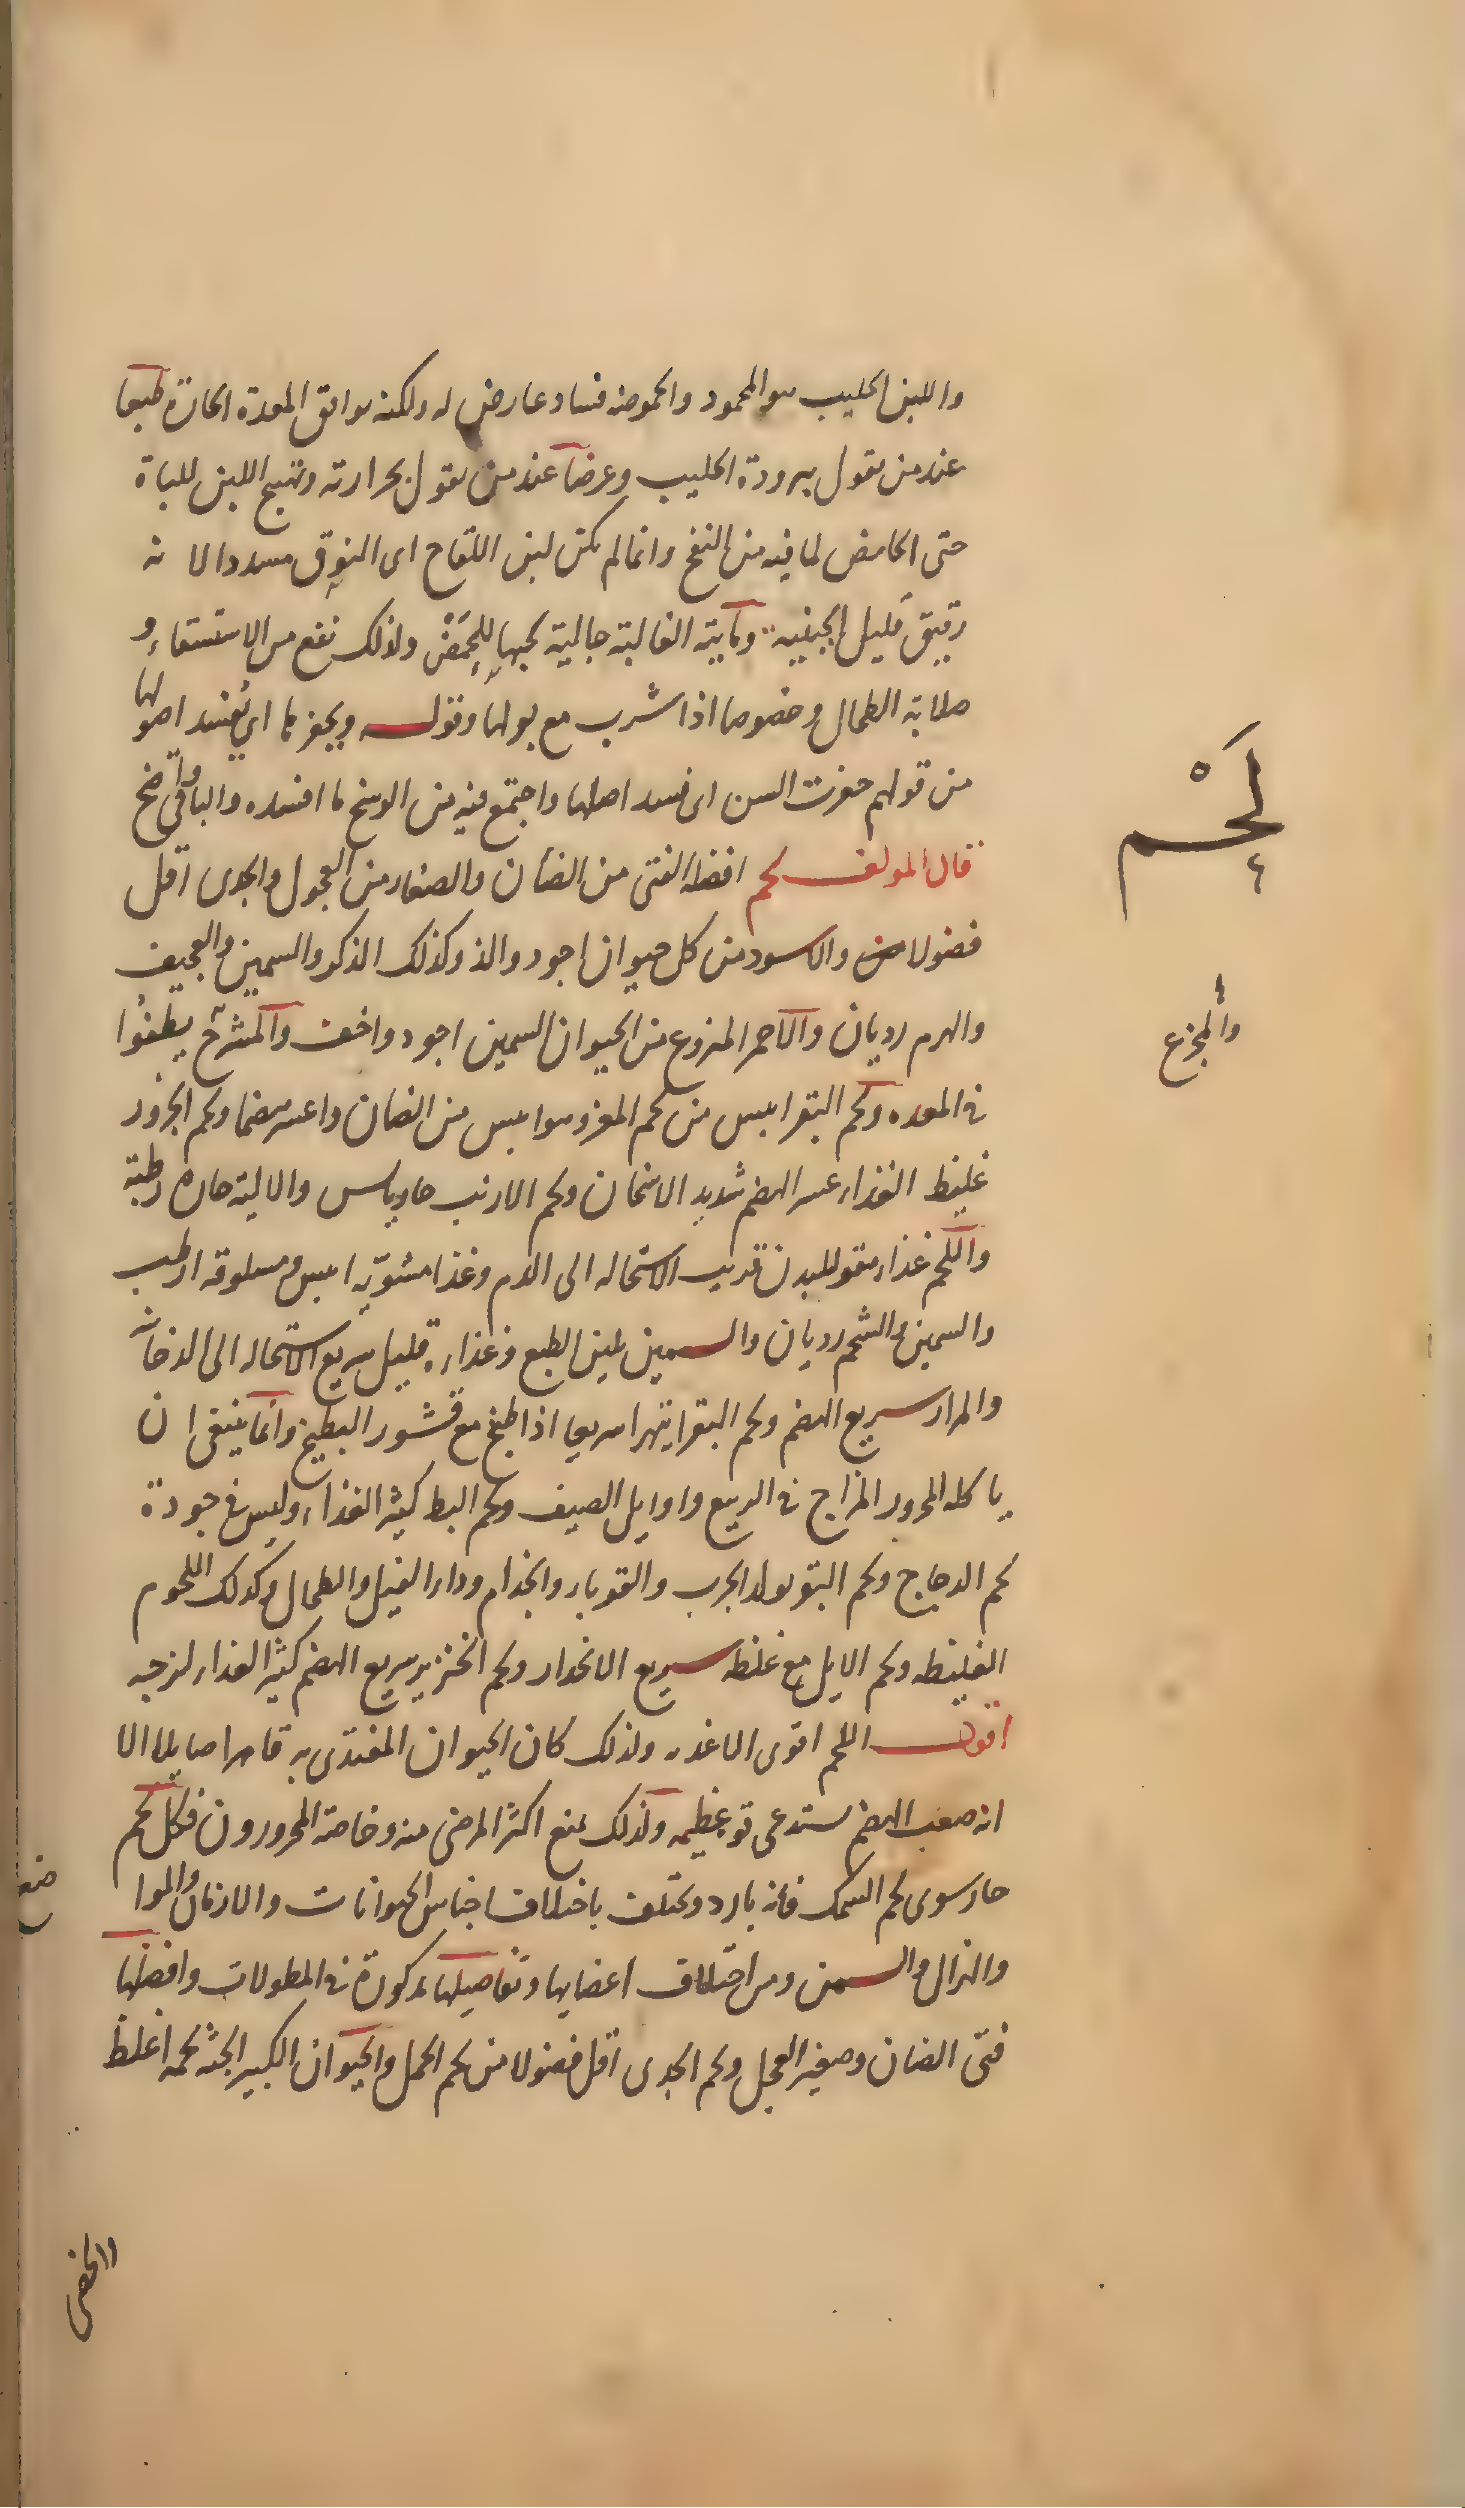 واللبن الحليب هو المحمود والحموضه فساد عارض له ولكنه يوافق المعدة الحارة طبعا
عند من يقول ببرودة الحليب وعرضا عند من يقول بحرارته وتهيج اللبن للباة
حتى الحامض لما فيه من النفخ وانما لم يكن لبن اللقاح اى النوق مسددا لا نه
رقيق قليل الجبنيه ومائيته الغالبة جالية لحبها للحمض ولذلك نفع من الاستسقاء و
صلابة الطحال وخصوصا اذا شرب مع بولها وقوله ويحفرها اى يفسد اصولها
من قولهم حفرت السن اى فسد اصلها واجتمع فيه من الوسخ ما افسده والباقى واضح
قال المولف لحم افضله الفتى من الضأن والصغار من العجول والجدى اقل
فضولا والاسود من كل حيوان اجود والذ وكذلك الذكر والسمين والعجيف
والهرم رديان والاحمر المنزوع من الحيوان السمين اجود واخف والمشرح يطفوا
فى المعده ولحم البقر ايبس من لحم المعز وهو ايبس من الضان واعسر هضما ولحم الجزور
غليظ الغذاء عسر الهضم شديد الاسخان ولحم الارنب حار يابس والالية حاره رطبة
واللحم غذاء مقو للبدن قريب الاستحاله الى الدم وغذا مشويه ايبس ومسلوقه ارطب
والسمين والشحم رديان والسمين يلين الطبع وغذاءه قليل سريع الاستحاله الى الدخانيه
والمرار سريع الهضم ولحم البقر يتهرا سريعا اذا طبخ مع قشور البطيخ وانما ينبغى ان
ياكله المحرور المزاج فى الربيع واوايل الصيف ولحم البط كثير الغذاء وليس فى جودة
لحم الدجاج ولحم البقر يولد الجرب والقوباء والجذام وداء الفيل والطحال وكذلك اللحوم
الغليظه ولحم الايل مع غلظه سريع الانحدار ولحم الخنزير سريع الهضم كثير الغذاء لزجه
اقول اللحم اقوى الاغذيه ولذلك كان الحيوان المغتذى به قاهرا صايلا الا
انه صعب الهضم يستدعى قوة عظيمه ولذلك يمنع اكثر المرضى منه وخاصة المحرورون فكل لحم
حار سوى لحم السمك فانه بارد ويختلف باختلاف اجناس الحيوانات والازمان والهوا
والهزال والسمن ومن اختلاف اعضايها وتفاصيلها مذكورة فى المطولات وافضلها
فتى الضان وصغير العجل ولحم الجدى اقل فضولا من لحم الحمل والحيوان الكبير الجثه لحمه اغلظ
لحم
والمجزع
والخصى